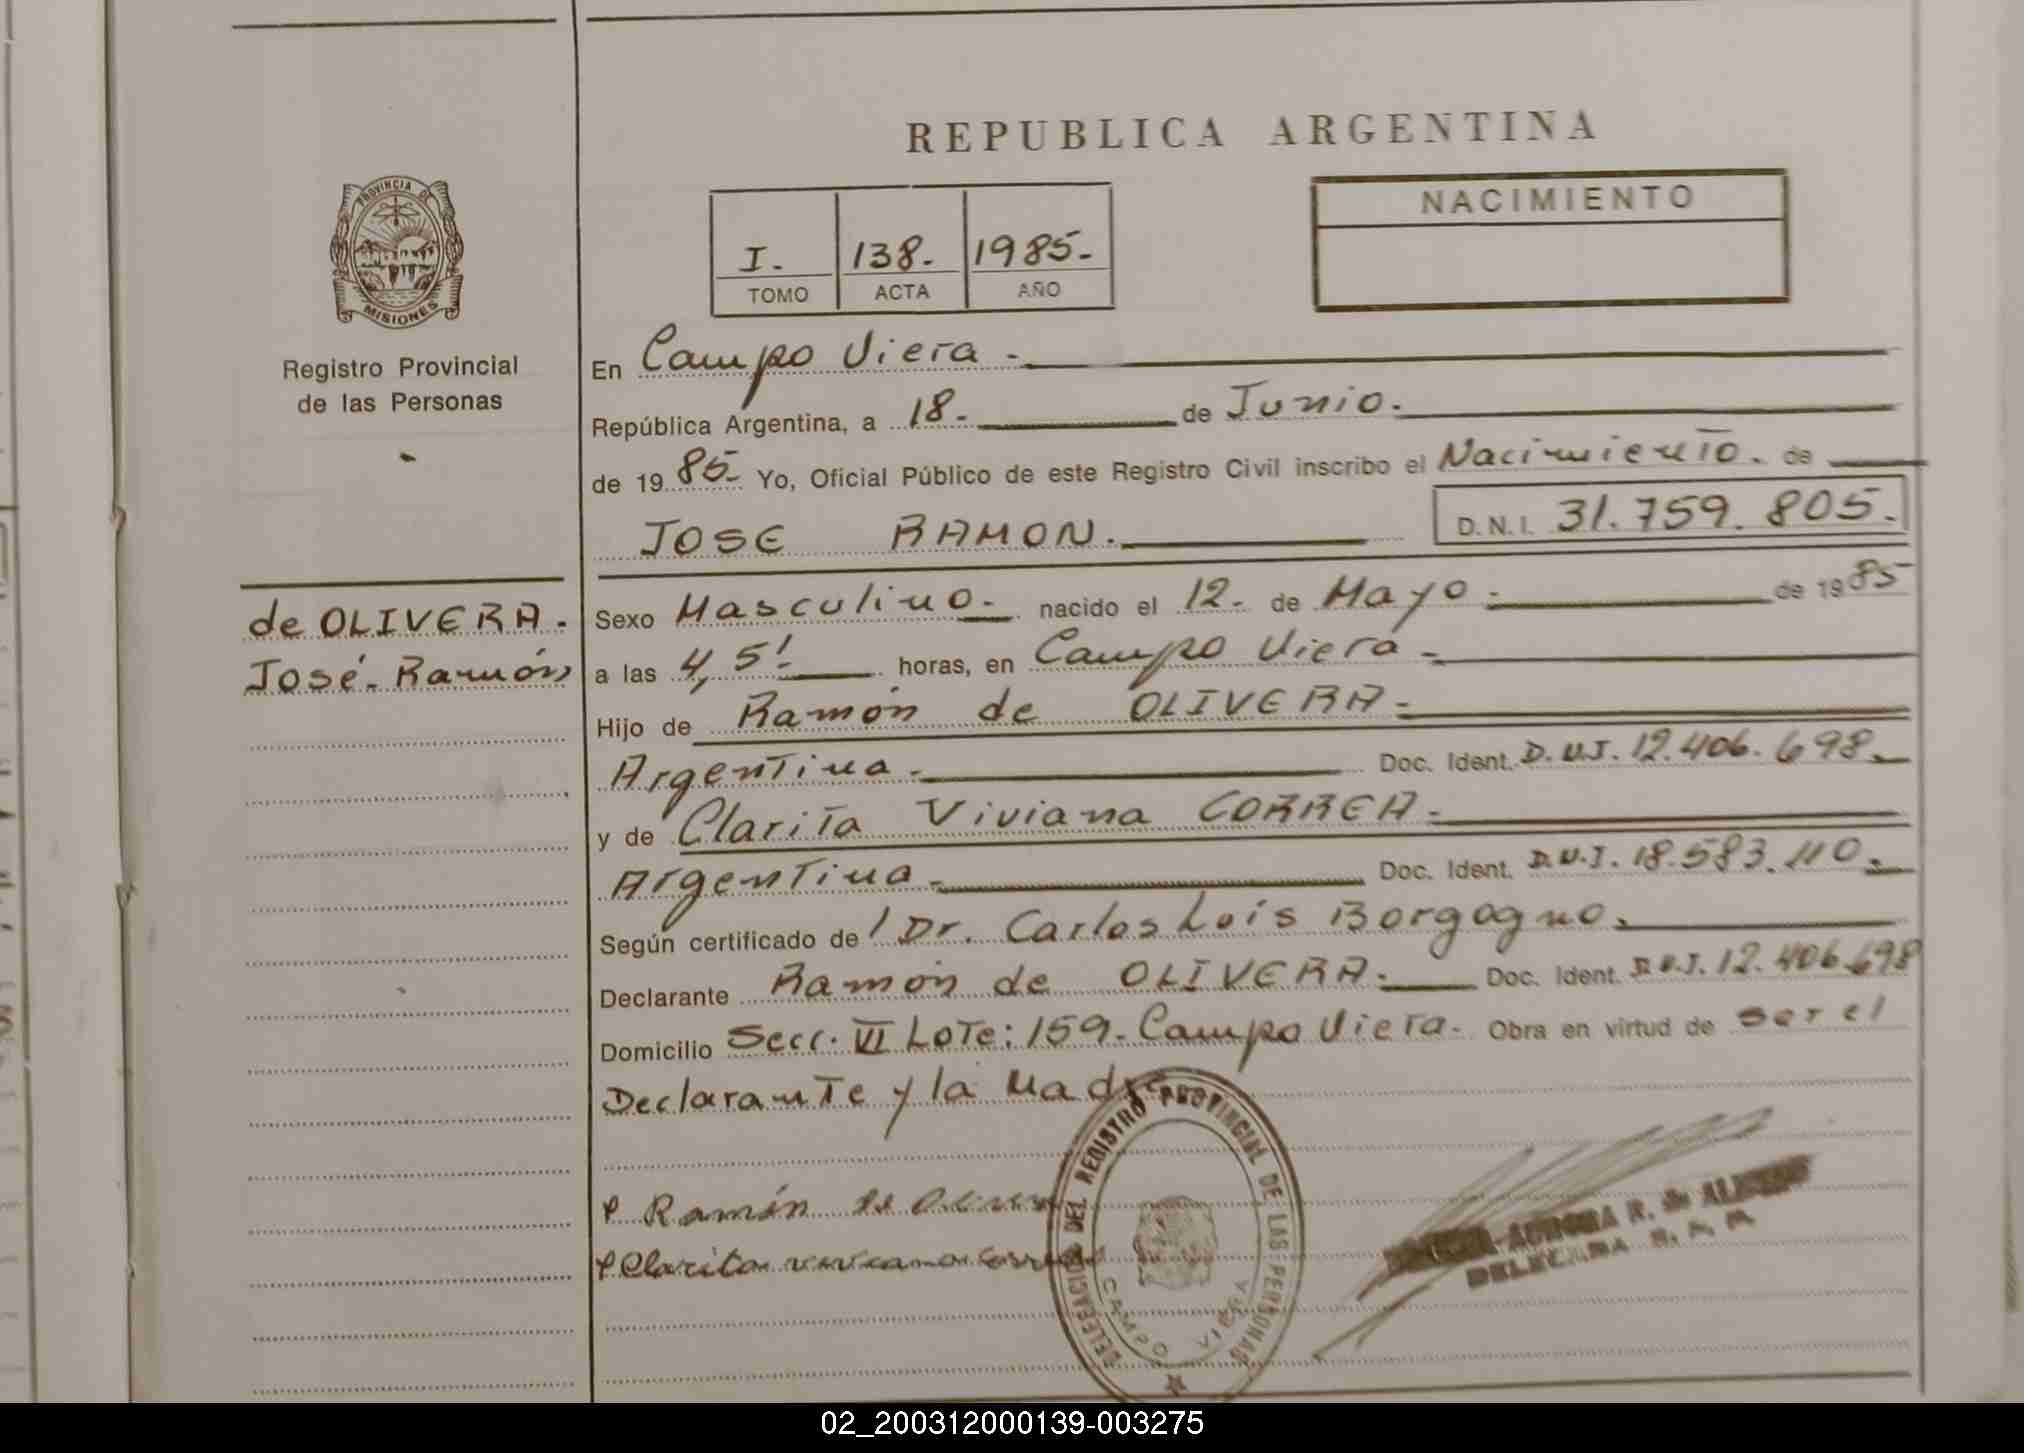 REPUBLICA ARGENTINA
PROVINCIA DE
MISIONES
Registro Provincial
de las Personas
I. 138. 1985.
TOMO ACTA AÑO
NACIMIENTO
En Campo Viera.
República Argentina, a 18. de Junio.
de 1985 Yo, Oficial Público de este Registro Civil inscribo el Nacimiento. de
JOSE RAMON.
D.N.I. 31.759.805.
de OLIVERA.
José Ramón
Sexo Masculino. nacido el 12. de Mayo. de 1985
a las 4,5! horas, en Campo Viera.
Hijo de Ramón de OLIVERA.
Argentina. Doc. Ident. D.N.I. 12.406.698.
y de Clarita Viviana CORREA.
Argentina. Doc. Ident. D.N.I. 18.583.110.
Según certificado de / Dr. Carlos Luis Borgogno.
Declarante Ramón de OLIVERA. Doc. Ident. D.N.I. 12.406.698
Domicilio Secc. VI Lote: 159. Campo Viera. Obra en virtud de ser el
Declarante y la Madre
Ramón de
Clarita
DELEGACION DEL REGISTRO PROVINCIAL DE LAS PERSONAS
CAMPO VIERA
AURORA R. de
DELEGADA R. P. P.
02_200312000139-003275